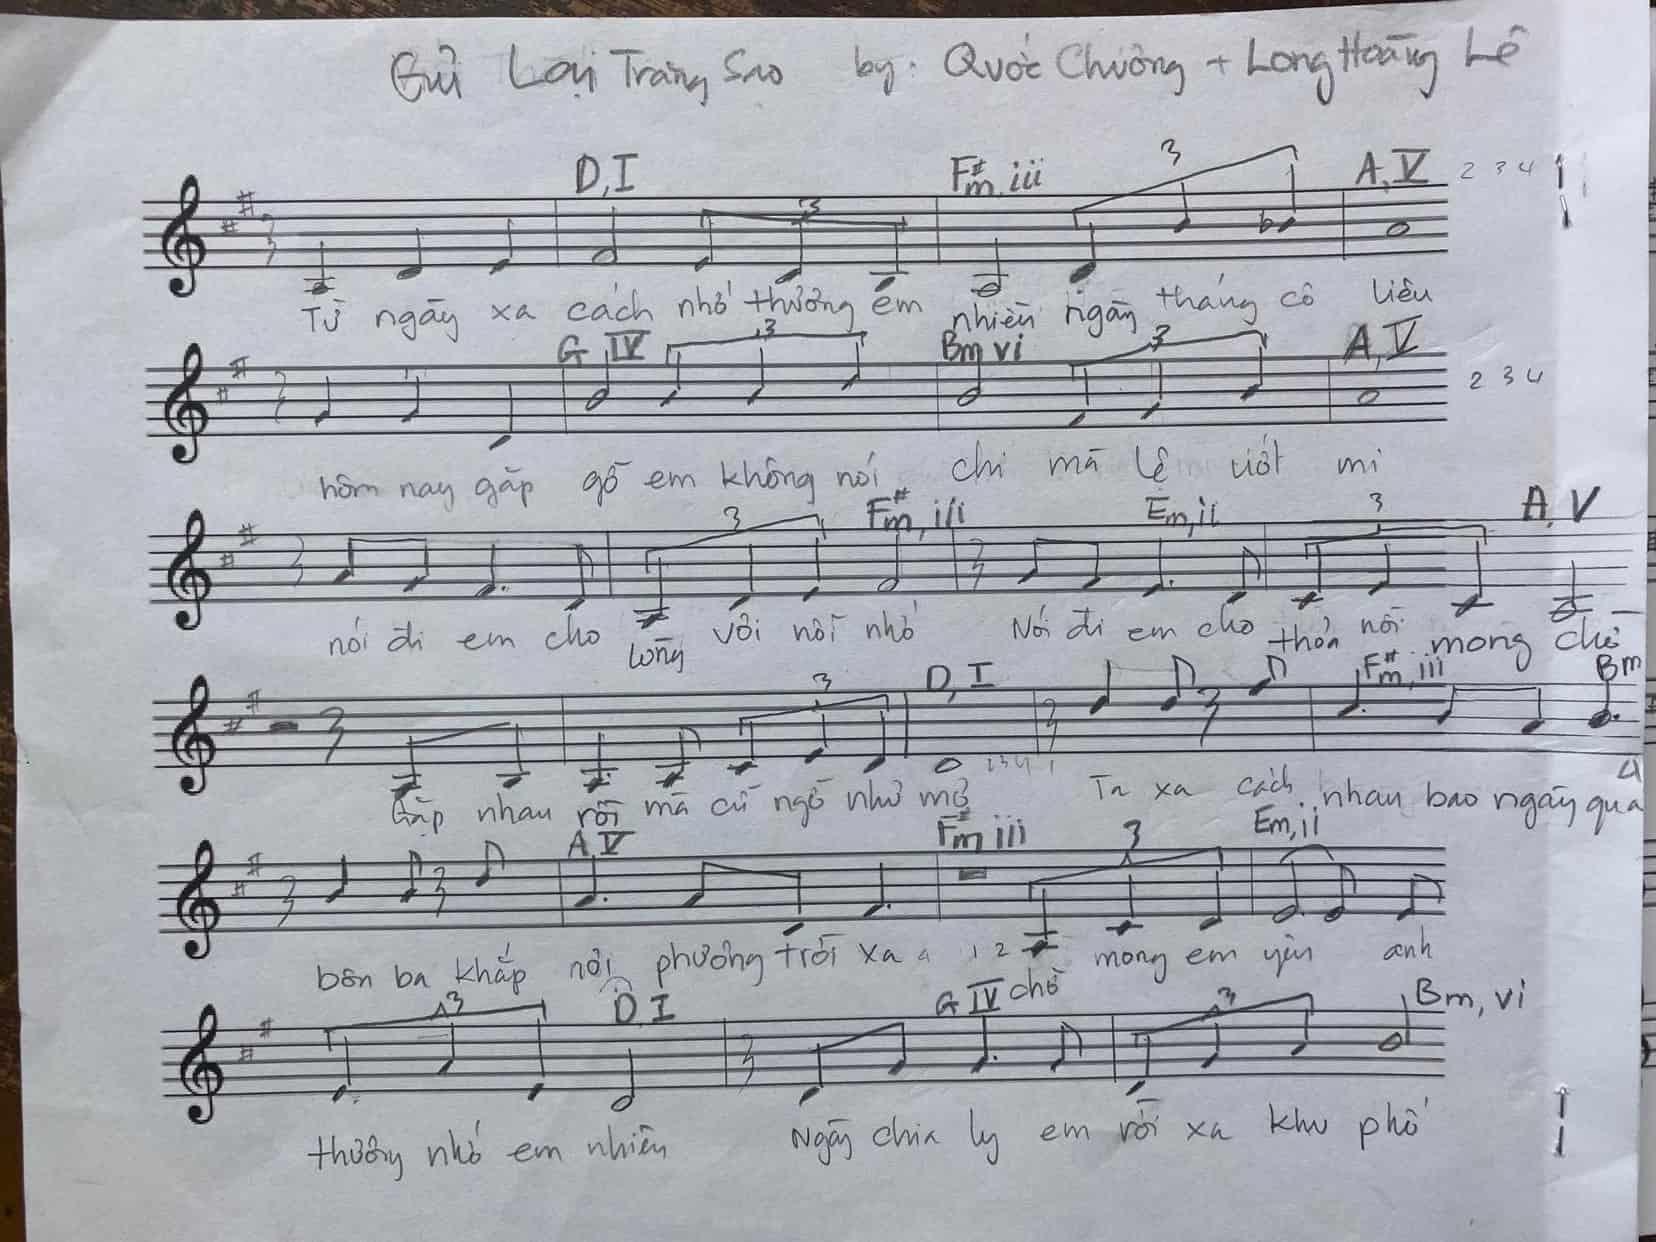 Gửi Lại Trăng Sao by: Quốc Chương + Long Hoàng Lê
D, I F#m, iii 3 3 A, V 2 3 4
Từ ngày xa cách nhớ thương em nhiều ngày tháng cô liêu
G IV 3 Bm vi 3 A, V 2 3 4
hôm nay gặp gỡ em không nói chi mà lệ ướt mi
3 F#m, iii Em, ii 3 A, V
nói đi em cho lòng vơi nỗi nhớ Nói đi em cho thỏa nỗi mong chờ
3 D, I F#m, iii Bm
Gặp nhau rồi mà cứ ngỡ như mơ Ta xa cách nhau bao ngày qua
A, V F#m iii 3 Em, ii
bôn ba khắp nơi phương trời xa a 1 2 chờ mong em yên anh
3 D I G IV 3 Bm, vi
thương nhớ em nhiều Ngày chia ly em rời xa khu phố